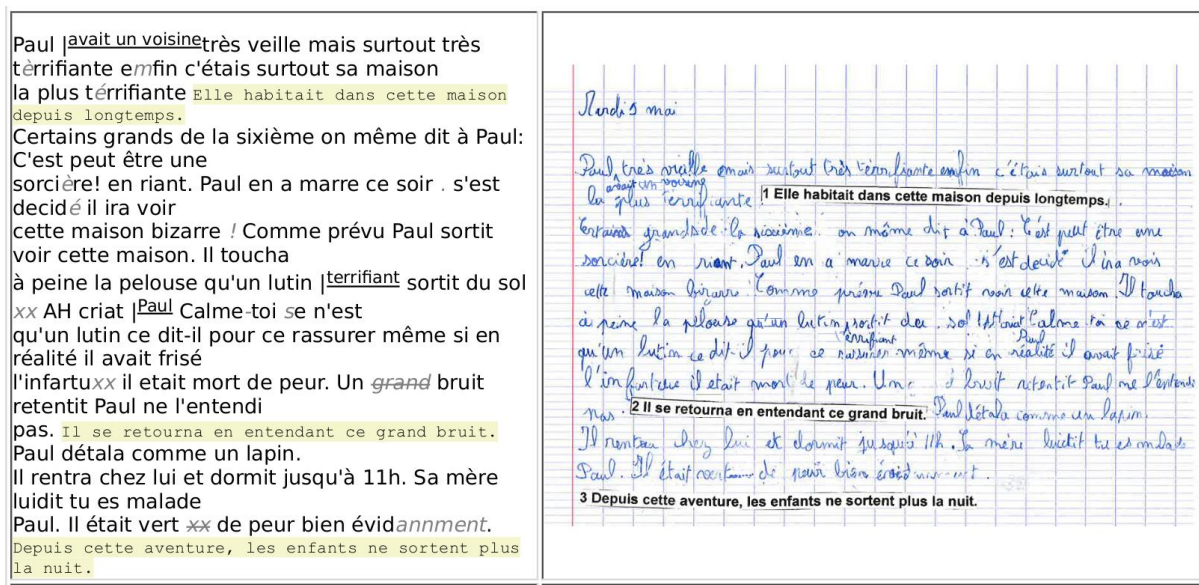 Paul |avait un voisinetrès veille mais surtout très
tèrrifiante emfin c'étais surtout sa maison
la plus térrifiante Elle habitait dans cette maison
depuis longtemps.
Certains grands de la sixième on même dit à Paul:
C'est peut être une
sorcière! en riant. Paul en a marre ce soir . s'est
decidé il ira voir
cette maison bizarre ! Comme prévu Paul sortit
voir cette maison. Il toucha
à peine la pelouse qu'un lutin |terrifiant sortit du sol
xx AH criat |Paul Calme-toi se n'est
qu'un lutin ce dit-il pour ce rassurer même si en
réalité il avait frisé
l'infartuxx il etait mort de peur. Un grand bruit
retentit Paul ne l'entendi
pas. Il se retourna en entendant ce grand bruit.
Paul détala comme un lapin.
Il rentra chez lui et dormit jusqu'à 11h. Sa mère
luidit tu es malade
Paul. Il était vert xx de peur bien évidannment.
Depuis cette aventure, les enfants ne sortent plus
la nuit.
Mardi 5 mai
Paul, très vieille mais surtout très tèrrifiante enfin c'étais surtout sa maison
avait un voisine
la plus terrifiante 1 Elle habitait dans cette maison depuis longtemps.
Certains grands de la sixième on même dit à Paul : C'est peut être une
sorcière! en riant. Paul en a marre ce soir s'est decidé il ira voir
cette maison bizarre Comme prévu Paul sortit voir cette maison. Il toucha
à peine la pelouse qu'un lutin sortit du sol criat Calme toi ce n'est
terrifiant Paul
qu'un lutin ce dit-il pour ce rassurer même si en réalité il avait frisé
l'infartue il etait mort de peur. Un bruit retentit Paul ne l'entendi
pas. 2 Il se retourna en entendant ce grand bruit. Paul détala comme un lapin.
Il rentra chez lui et dormit jusqu'à 11h. Sa mère luidit tu es malade
Paul. Il était vert de peur bien
3 Depuis cette aventure, les enfants ne sortent plus la nuit.